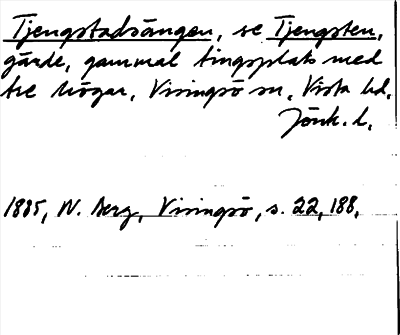 Tjengstadsängen, se Tjengsten,
gärde, gammal tingsplats med
tre högar, Visingsö sn, Vista hd,
Jönk. l.
1885, W. Berg, Visingsö, s. 22, 188.